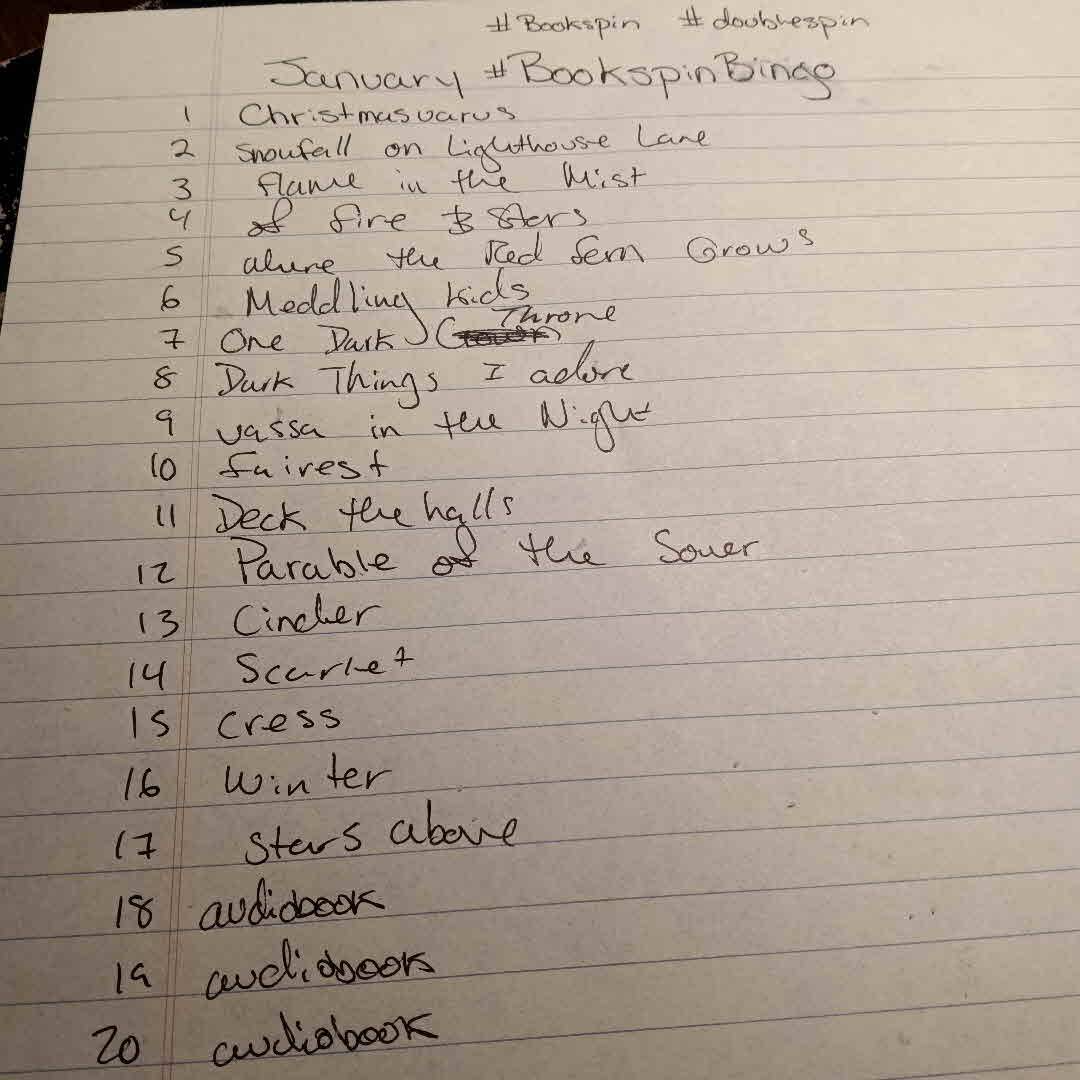 #Bookspin #doublespin
January #BookspinBingo
1 Christmasuarus
2 Snowfall on Lighthouse Lane
3 Flame in the Mist
4 of fire & Stars
5 where the Red fern Grows
6 Meddling kids
7 One Dark Throne
8 Dark Things I adore
9 vassa in the Night
10 fairest
11 Deck the halls
12 Parable of the Sower
13 Cinder
14 Scarlet
15 Cress
16 Winter
17 Stars above
18 audiobook
19 audiobook
20 audiobook